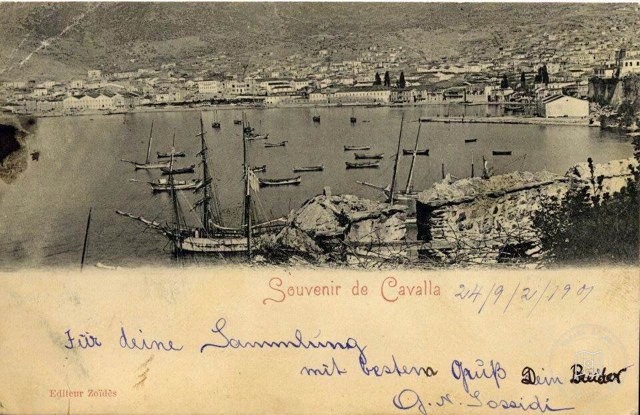 Souvenir de Cavalla 24/9/2/1901
Für deine Sammlung
mit bestem Gruß Dein Bruder
Editeur Zoïdès